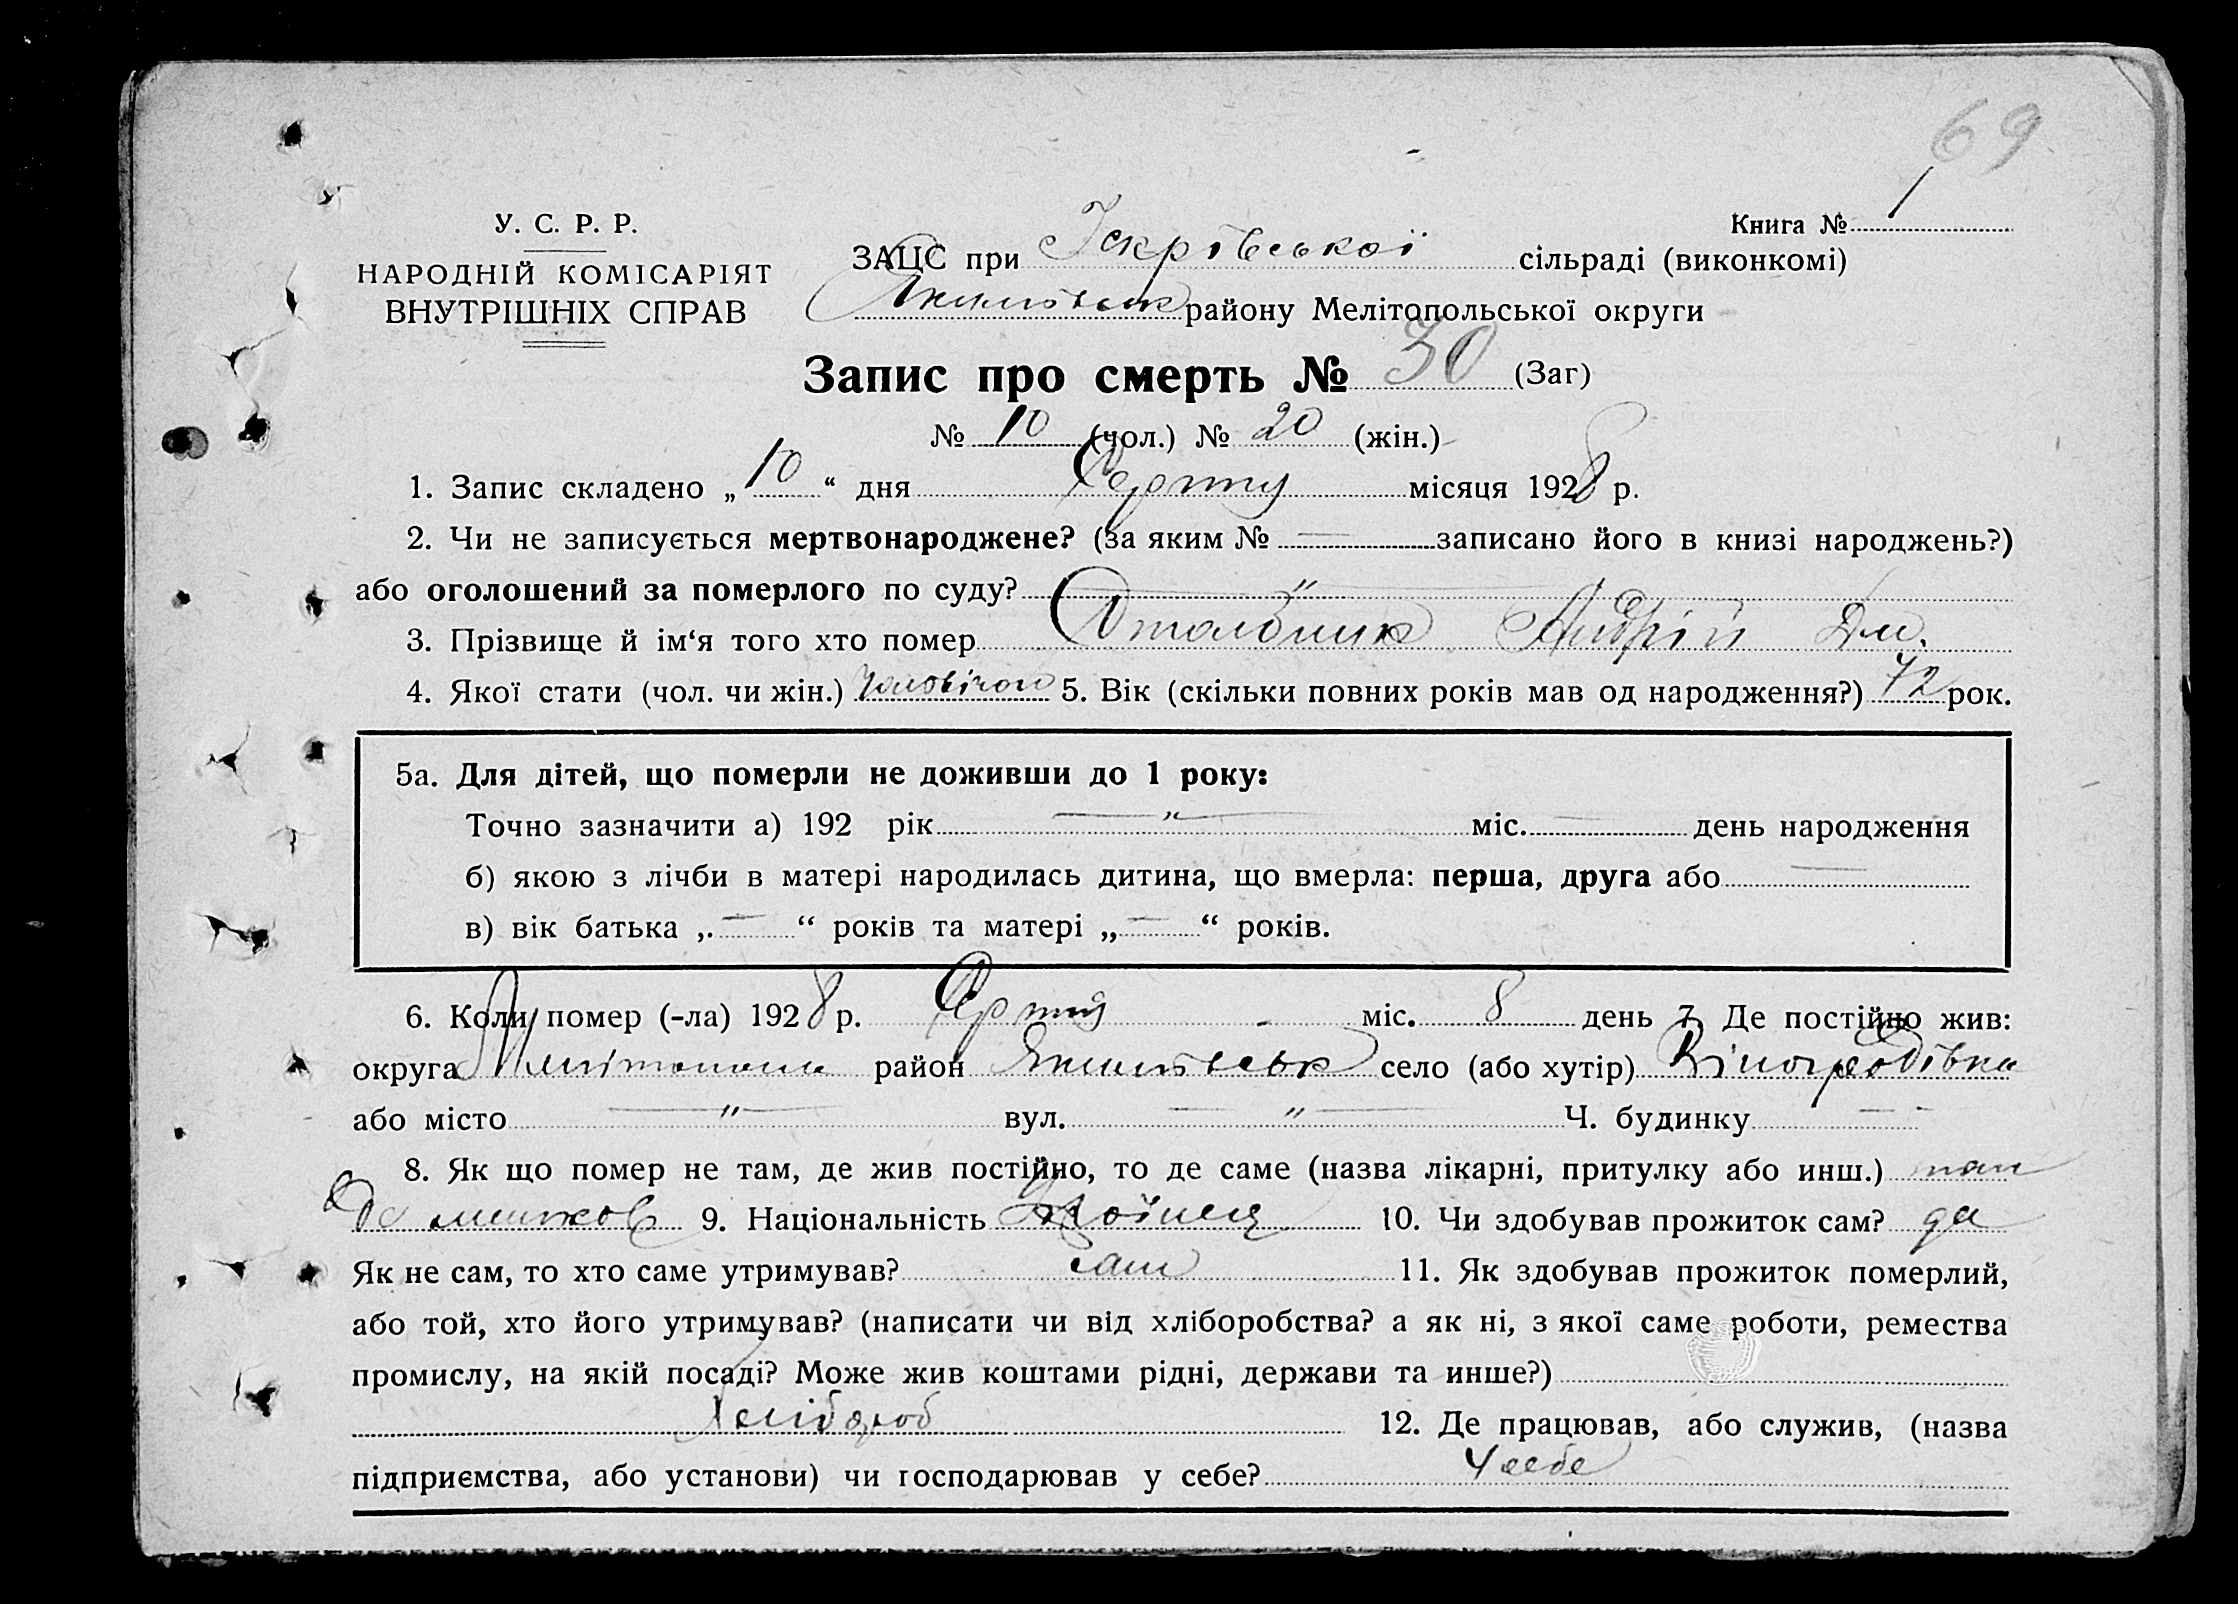 69
У. С. Р. Р.
НАРОДНІЙ КОМІСАРІЯТ
ВНУТРІШНІХ СПРАВ
Книга № 1
ЗАЦС при Іскрівської сільраді (виконкомі)
Якимівськ району Мелітопольської округи
Запис про смерть № 30 (Заг)
№ 10 (чол.) № 20 (жін.)
1. Запис складено „ 10 “ дня Серпту місяця 1928 р.
2. Чи не записується мертвонароджене? (за яким № — записано його в книзі народжень?)
або оголошений за померлого по суду? — " —
3. Прізвище й ім‘я того хто помер Андрій Дм.
4. Якої стати (чол. чи жін.) 5. Вік (скільки повних років мав од народження?) 72 рок.
5а. Для дітей, що померли не доживши до 1 року:
Точно зазначити а) 192 рік — " — міс. — день народження
б) якою з лічби в матері народилась дитина, що вмерла: перша, друга або —
в) вік батька „ — “ років та матері „ — “ років.
6. Коли помер (-ла) 1928 р. міс. 8 день 7. Де постійно жив:
округа район Якимівськ село (або хутір)
або місто — " — вул. — " — Ч. будинку —
8. Як що помер не там, де жив постійно, то де саме (назва лікарні, притулку або инш.) там
де мешкав 9. Національність 10. Чи здобував прожиток сам? да
Як не сам, то хто саме утримував? сам 11. Як здобував прожиток померлий,
або той, хто його утримував? (написати чи від хліборобства? а як ні, з якої саме роботи, ремества
промислу, на якій посаді? Може жив коштами рідні, держави та инше?)
12. Де працював, або служив, (назва
підприємства, або установи) чи господарював у себе? У себе